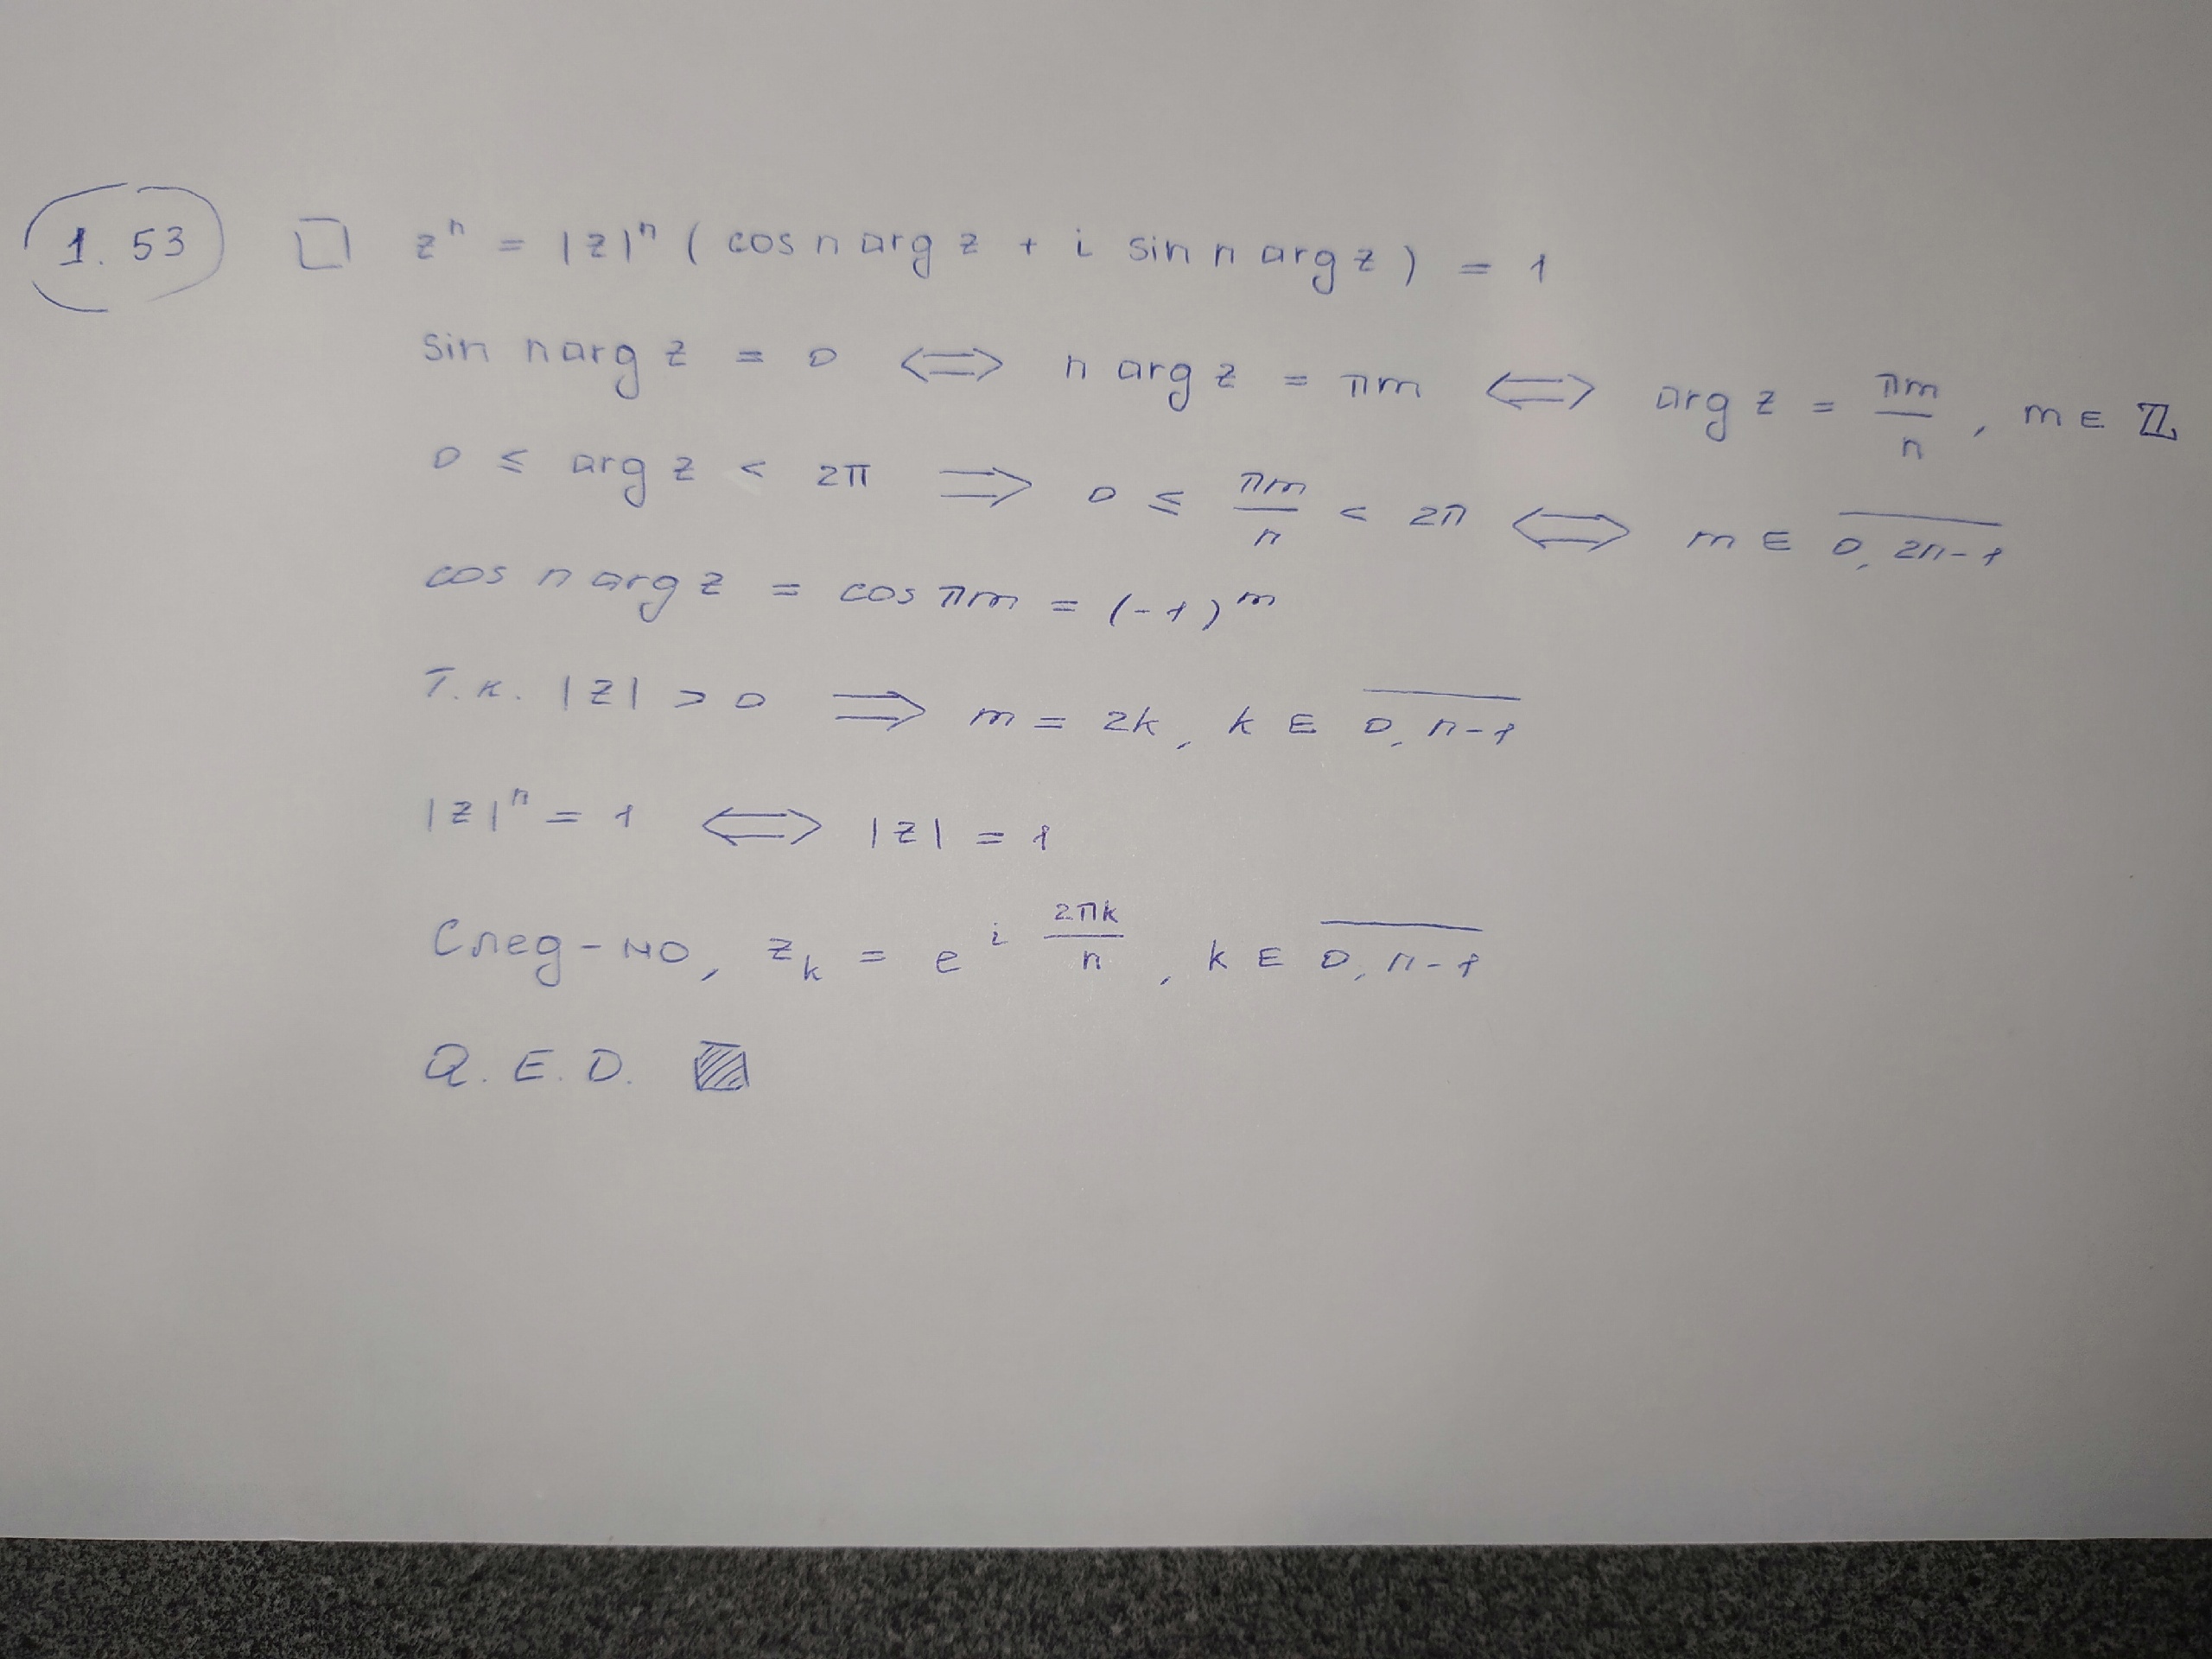 1.53 □ zⁿ = |z|ⁿ ( cos n arg z + i sin n arg z ) = 1
sin n arg z = 0 ⟺ n arg z = πm ⟺ arg z = πm/n , m ∈ ℤ
0 ≤ arg z < 2π ⟹ 0 ≤ πm/n < 2π ⟺ m ∈ \overline{0, 2n-1}
cos n arg z = cos πm = (-1)^m
Т.к. |z| > 0 ⟹ m = 2k, k ∈ \overline{0, n-1}
|z|ⁿ = 1 ⟺ |z| = 1
След-но, z_k = e^{i 2πk/n} , k ∈ \overline{0, n-1}
Q.E.D. ▨